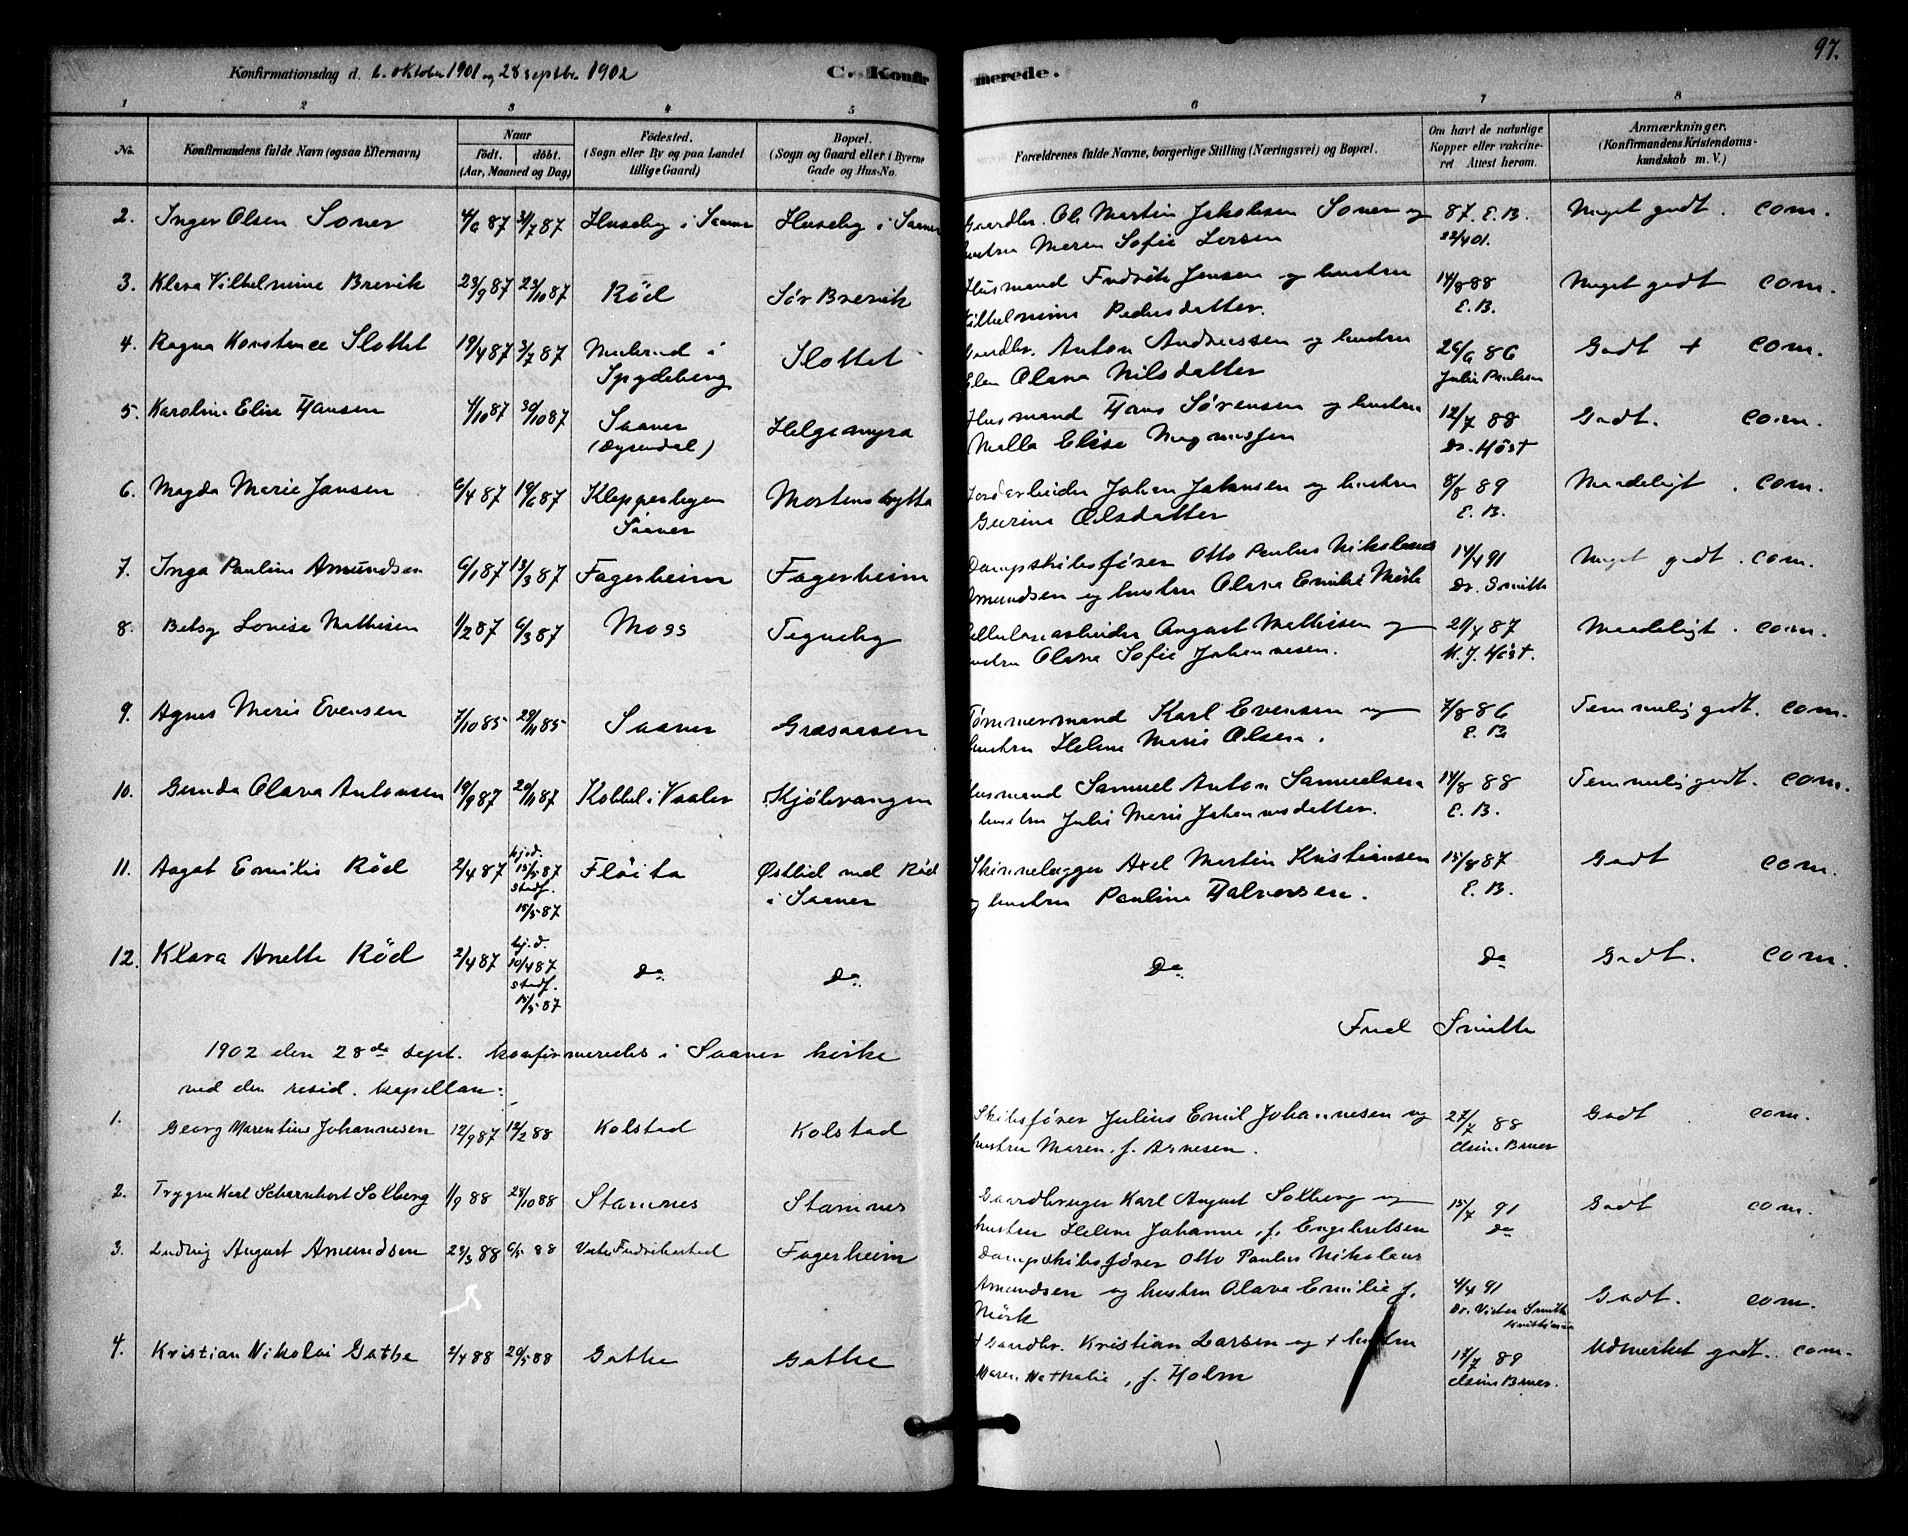 97.
Konfirmationsdag d. 6. oktober 1901 og 28 septbr 1902 C. Konfirmerede.
1 2 3 4 5 6 7 8
No. Konfirmandens fulde Navn (ogsaa Efternavn) Naar födt. döbt. (Aar, Maaned og Dag) Födested. (Sogn eller By og paa Landet tillige Gaard) Bopæl. (Sogn og Gaard eller i Byerne Gade og Hus-No. Forældrenes fulde Navne, borgerlige Stilling (Næringsvei) og Bopæl. Om havt de naturlige Kopper eller vakcineret Attest herom. Anmærkninger. (Konfirmandens Kristendomskundskab m. V.)
2. Inger Olsen Soner 4/6 87 31/7 87 Huseby i Saaner Huseby i Saaner Gaardbr. Ole Martin Jakobsen Soner og 87. E.B. Meget godt. com.
hustru Maren Sofie Larsen 22/4 01.
3. Klara Vilhelmine Brevik 23/9 87 23/10 87 Röd Sör Brevik Husmand Fredrik Jensen og hustru 14/8 88 Meget godt com.
Vilhelmine Pedersdatter. E.B.
4. Ragna Konstance Slottet 19/4 87 3/7 87 i Spydeberg Slottet Gaardbr. Anton Andreassen og hustru 26/6 86 Godt + com.
Elen Olava Nilsdatter Julie Paulsen
5. Karoline Elise Hansen 4/10 87 30/10 87 Saaner Helgemyra Husmand Hans Sörensen og hustru 12/7 88 Godt. com.
(Øyendal) Malla Elise Magnussen Dr. Höst
6. Magda Marie Jansen 6/4 87 19/6 87 Kleppeshagen Saaner Mortenshytta Jordarbeider Johan Jakobsen og hustru 8/8 89 Maadeligt. com.
Gurine Olsdatter E.B.
7. Inga Pauline Amundsen 6/1 87 13/3 87 Fagerheim Fagerheim Dampskibsförer Otto Paulus Nikolaus 14/4 91 Meget godt. com.
Amundsen og hustru Olava Emilie Mörk Dr. Smith
8. Betsy Lovise Mathisen 1/2 87 6/3 87 Moss Tegneby Cellulosearbeider August Mathisen og 21/7 87 Maadeligt. com.
hustru Olava Sofie Johannesen. M. J. Höst.
9. Agnes Marie Evensen 7/10 85 29/11 85 Saaner Græsaasen Tömmermand Karl Evensen og 7/8 86 Temmelig godt. com.
hustru Helene Marie Olsen. E.B.
10. Gunda Olava Antonsen 19/9 87 20/11 87 Kobbel i Vaaler Kjölevangen Husmand Samuel Anton Samuelsen 14/8 88 Temmelig godt. com.
og hustru Julie Marie Johannesdatter. E.B.
11. Aagot Emilie Röd 2/4 87 hj.d. 15/5 87 stadf. 15/5 87 Flöita Østlid ved Röd i Saaner Skinnelægger Axel Martin Kristiansen 15/8 87 Godt com.
og hustru Pauline Halvorsen. E.B.
12. Klara Anette Röd 2/4 87 hj.d. 10/4 87 stadf. 15/5 87 Do. Do. Do. Do Godt. com.
Fred Smith
1902 den 28de sept. konfirmeredes i Saaner kirke
ved den resid. kapellan:
1. Georg Marentius Johannesen 12/9 87 12/2 88 Kolstad Kolstad Skibsförer Julius Emil Johannesen og 27/7 88 Godt com.
hustru Maren, f. Arnesen. Elsine Bruer
2. Trygve Karl Scharnhorst Solberg 1/9 88 28/10 88 Stamnes Stamnes Gaardbruger Karl August Solberg og 15/7 91 Godt com.
hustru Helene Johanne, f. Engebretsen do
3. Ludvig August Amundsen 23/3 88 6/5 88 Vestre Fredrikstad Fagerheim Dampskibsförer Otto Paulus Nikolaus
Amundsen og hustru Olava Emilie f. Mörk 4/4 91 Dr. Victor Smith Kristiania Godt. com.
4. Kristian Nikolai Gathe 2/4 88 20/5 88 Gathe Gathe + Gaardbr. Kristian Larsen og + hustru 17/7 89 Udmerket godt. com.
Maren Nathalie, f. Holm Elsine Bruer.